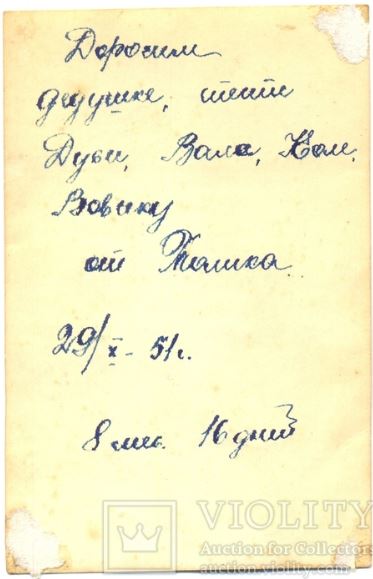 Дорогим
дедушке, тети
Дуси, Вале, Коле,
Вовику
от Толика
29/X - 51 г.
8 мес. 16 дней
VIOLITY
Auction for Collectors
auction.violity.com